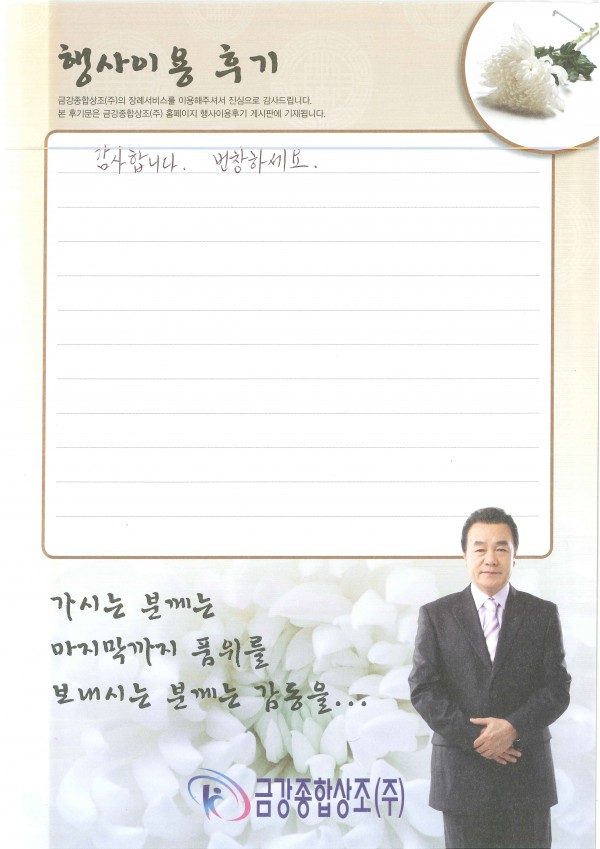 행사이용 후기
금강종합상조(주)의 장례서비스를 이용해주셔서 진심으로 감사드립니다.
본 후기문은 금강종합상조(주) 홈페이지 행사이용후기 게시판에 기재됩니다.
감사합니다. 번창하세요.
가시는 분께는
마지막까지 품위를
보내시는 분께는 감동을...
금강종합상조(주)